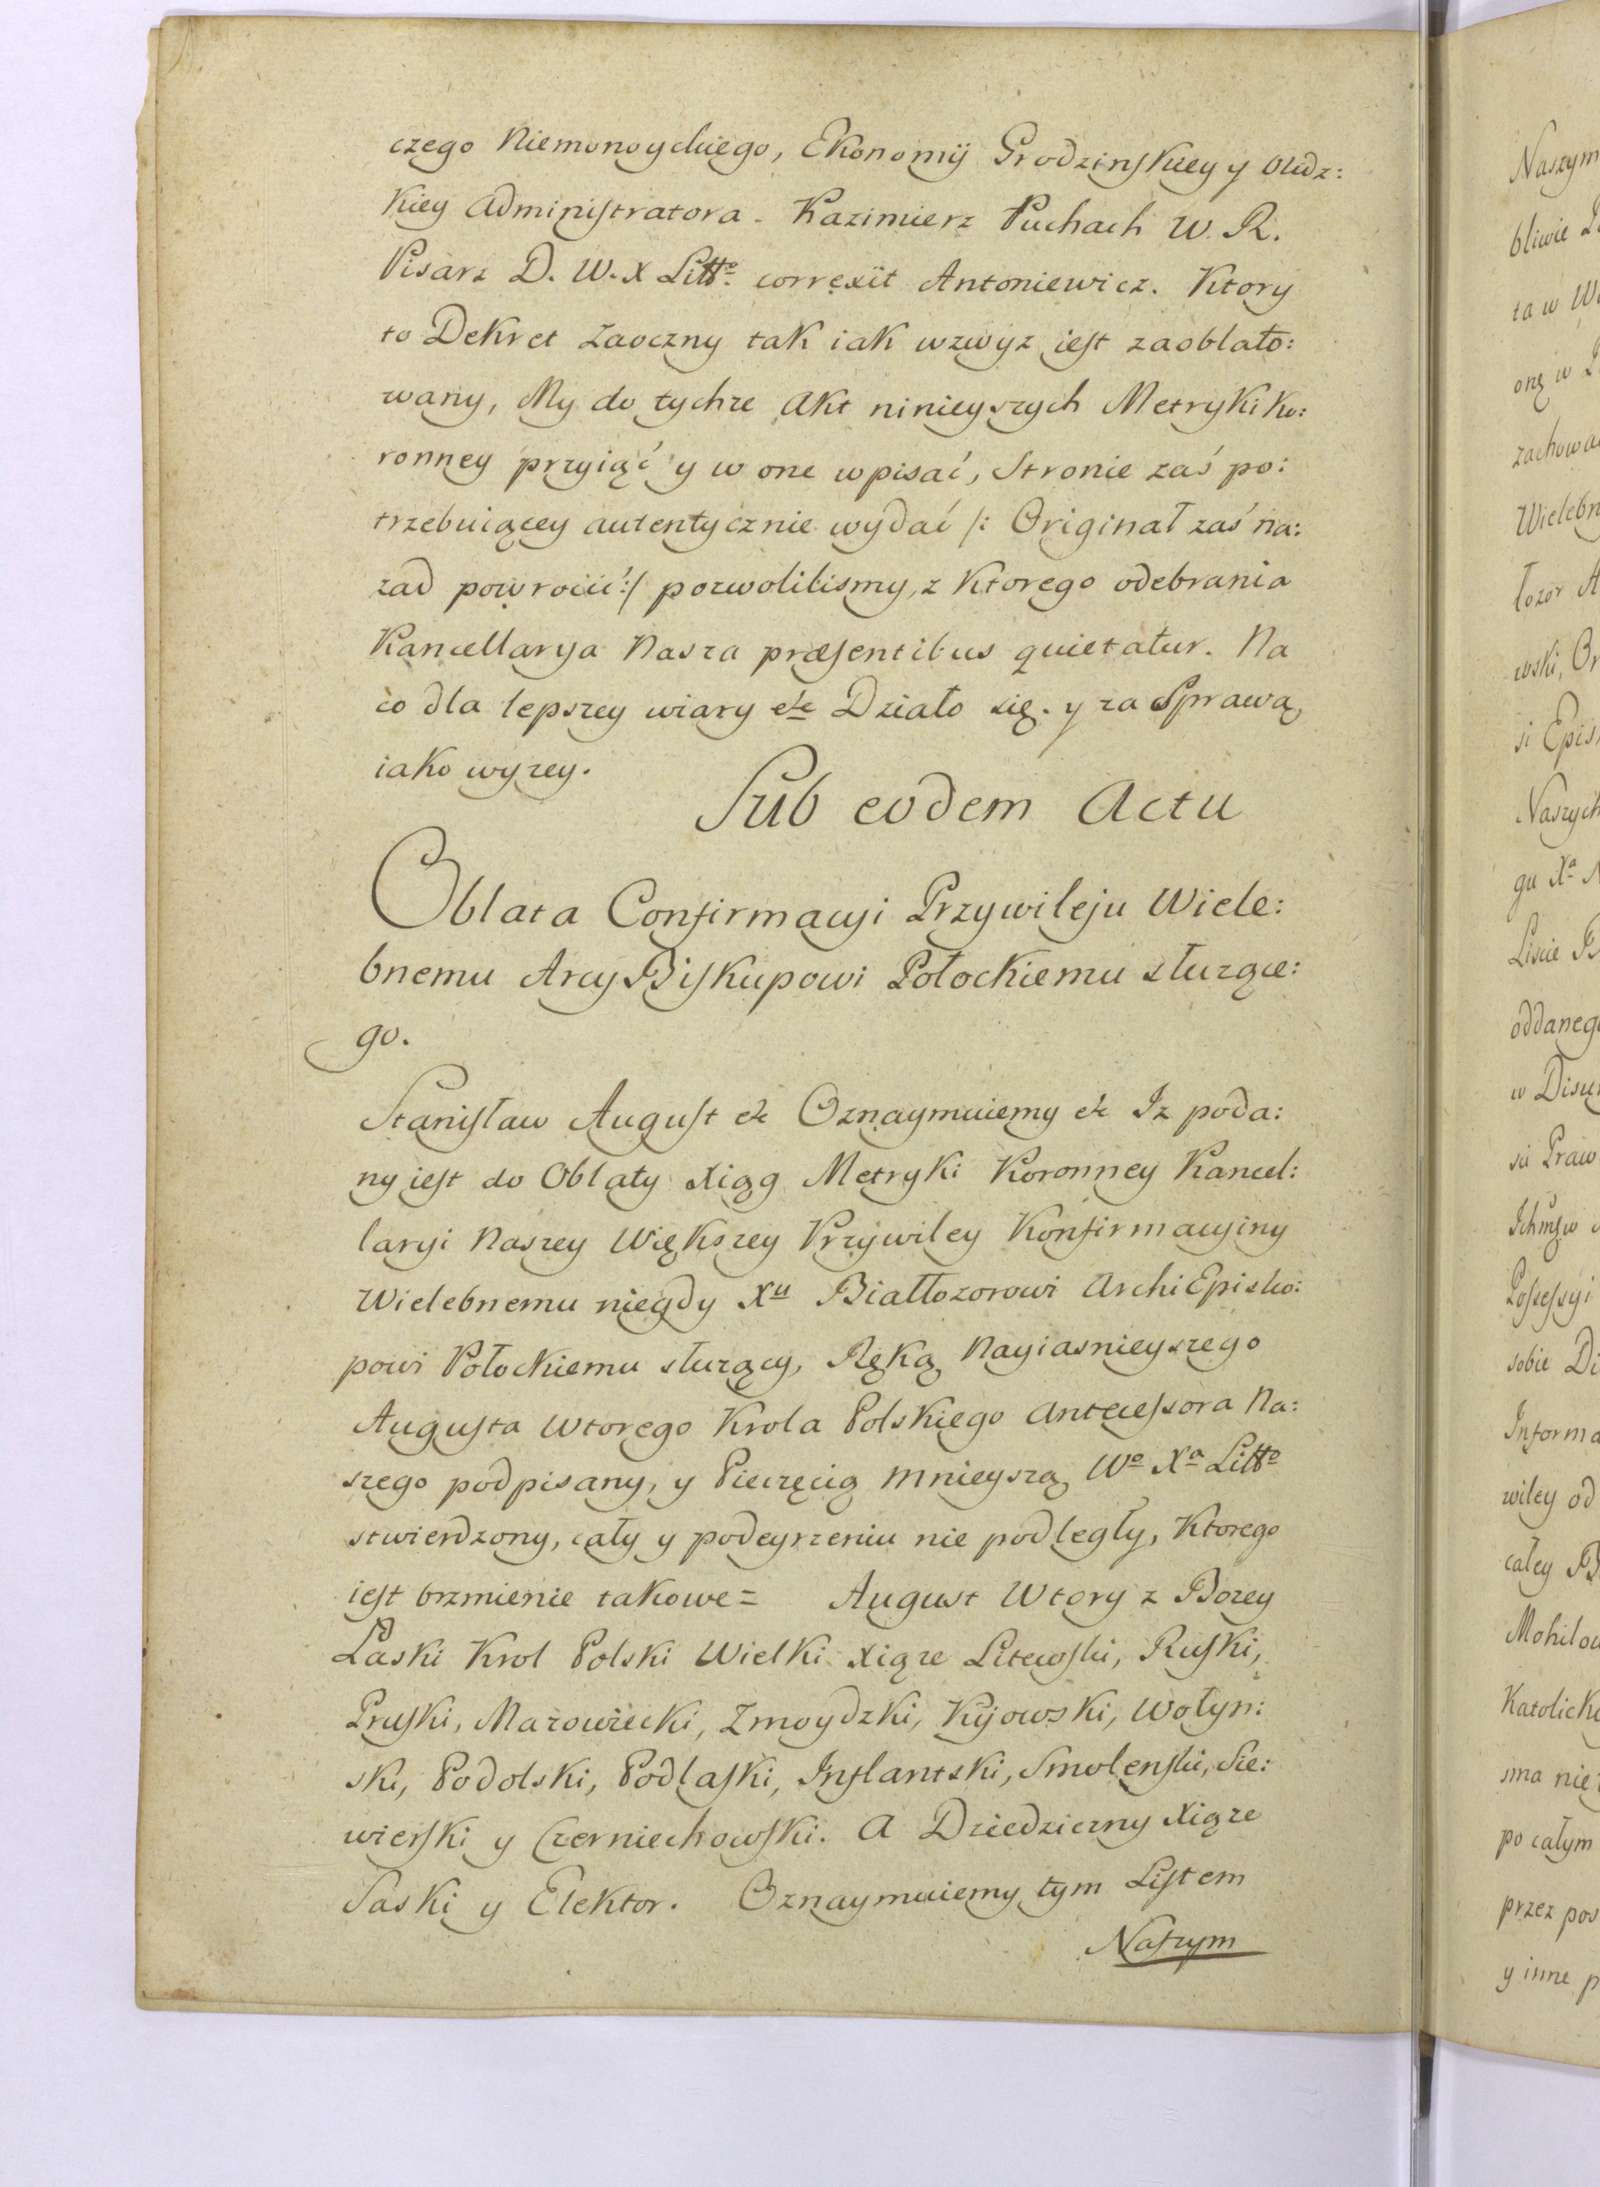 czego Niemonoyckiego, Ekonomij Grodzinskiey y Olidz:
kiey Administratora. Kazimierz Puchach W. R.
Pisarz D. W. X Litto correxit Antoniewicz. Ktory
to Dekret Zaoczny tak iak wzwyz iest zaoblato:
wany, My do tychze Akt ninieyszych Metryki Ko:
ronney przyiąć y w one wpisać, Stronie zaś po:
trzebuiącey autentycznie wydać /: Originał zaś na:
zad powrocić :/ pozwolilismy, z ktorego odebrania
Kancellarya Nasza præsentibus quietatur. Na
co dla lepszey wiary etc Działo się. y za Sprawą,
iako wyzey.
Sub eodem Actu
Oblata Confirmacyi Przywileju Wiele:
bnemu Arcy Biskupowi Połockiemu służące:
go.
Stanisław August etc Oznaymuiemy etc Iz poda:
ny iest do Oblaty Xiąg Metryki Koronney Kancel:
laryi Naszey Większey Przywiley Konfirmacyiny
Wielebnemu niegdy Xu Białłozorowi ArchiEpisko:
powi Połockiemu służący, Ręką Nayiasnieyszego
Augusta Wtorego Krola Polskiego Antecessora Na:
szego podpisany, y Pieczęcią mnieyszą Wo Xa Litto
stwierdzony, cały y podeyrzeniu nie podległy, Ktorego
iest brzmienie takowe = August Wtory z Bozey
Łaski Krol Polski Wielki Xiąze Litewski, Ruski,
Pruski, Mazowiecki, Zmoydzki, Kijowski, Wołyn:
ski, Podolski, Podlaski, Inflantski, Smolenski, Sie:
wierski y Czerniechowski. A Dziedziczny Xiąze
Saski y Elektor. Oznaymuiemy tym Listem
Naszym
Naszym
bliwie
ta w
onę w
zachowa
Wielebn
łozor
wski,
si Epis
Naszych
gu Xa
Liscie
oddaneg
w Disu
sci Praw
Possessyi
sobie Di
Informa
wiley od
całey
Mohilow
Katolick
sma nie
po całym
przez pos
y inne p